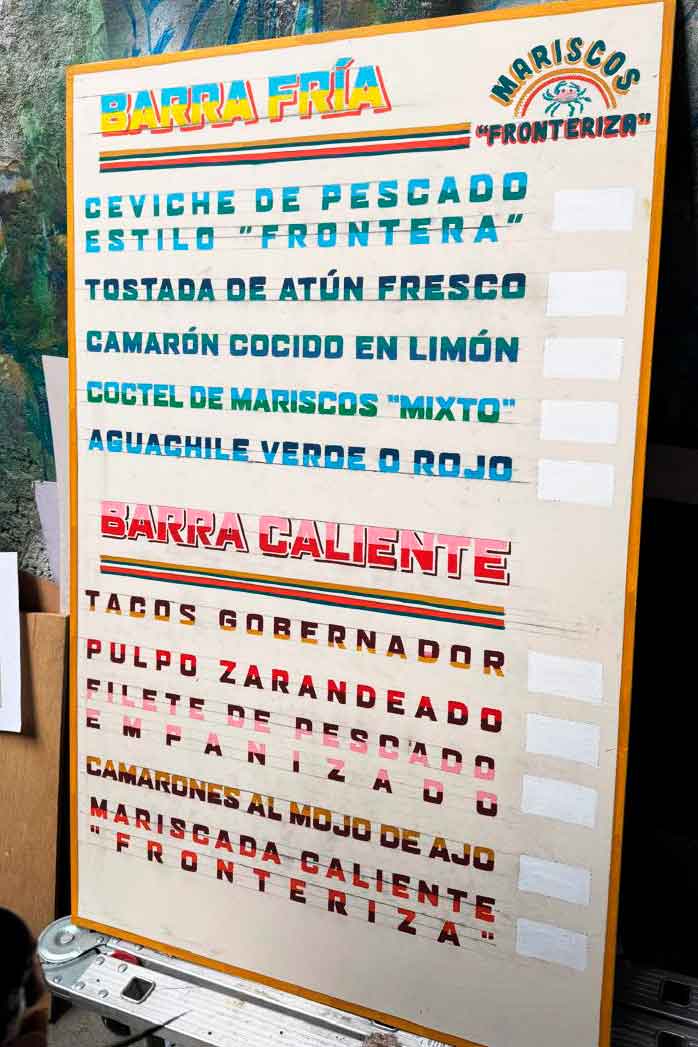 BARRA FRÍA
MARISCOS
"FRONTERIZA"
CEVICHE DE PESCADO
ESTILO "FRONTERA"
TOSTADA DE ATÚN FRESCO
CAMARÓN COCIDO EN LIMÓN
COCTEL DE MARISCOS "MIXTO"
AGUACHILE VERDE O ROJO
BARRA CALIENTE
TACOS GOBERNADOR
PULPO ZARANDEADO
FILETE DE PESCADO
EMPANIZADO
CAMARONES AL MOJO DE AJO
MARISCADA CALIENTE
"FRONTERIZA"